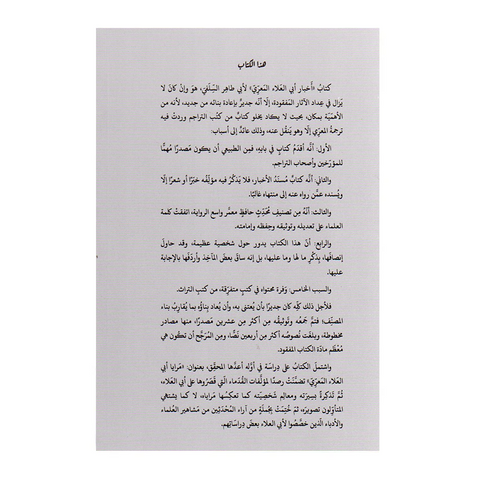 هذا الكتاب
كتابُ «أخبار أبي العَلاء المَعرّيّ» لأبي طاهِر السِّلَفيّ، هوَ وإنْ كانَ لا
يَزال في عِداد الآثار المَفقودة، إلّا أنّه جديرٌ بإعادة بنائه من جديد، لأنه من
الأهمّيّة بمكان، بحيث لا يكاد يخلو كتابٌ من كُتب التراجم وردتْ فيه
ترجمةُ المعرّي إلّا وهو يَنقُل عنه، وذلك عائدٌ إلى أسباب:
الأول: أنَّه أقدَمُ كتابٍ في بابِه، فمِن الطبيعي أن يكون مَصدرًا مُهمًّا
للمؤرّخين وأصحاب التراجم.
والثاني: أنَّه كتابٌ مُسنَدُ الأخبار، فلا يَذكُرُ فيه مؤلِّفُه خبَرًا أو شعرًا إلّا
ويُسنده عمَّن رواه عنه إلى منتهاه غالبًا.
والثالث: أنَّه مِن تصنيفِ مُحدِّثٍ حافظٍ معمَّر واسع الرواية، اتفقتْ كلمة
العلماء على تعديله وتوثيقه وحِفظه وإمامته.
والرابع: أنَّ هذا الكتاب يدور حول شخصية عظيمة، وقد حاولَ
إنصافَها، بذِكْرِ ما لها وما عليها، بل إنه ساقَ بعضَ المآخِذ وأردَفَها بالإجابة
عليها.
والسبب الخامس: وَفرة محتواه في كتبٍ متفرّقة، من كتب التراث.
فلأجل ذلك كلِّه كان جديرًا بأن يُعتنى به، وأن يُعاد بِناؤه بما يُقارِبُ بناء
المصنِّف؛ فتمَّ جَمعُه وتَوثيقُه مِن أكثرَ مِن عشرين مَصدرًا، منها مصادر
مخطوطة، وبلغت نُصوصُه أكثرَ مِن أربعين نصًّا، ومِن المُرجَّح أن تكون هي
مُعْظَم مادّة الكتاب المفقود.
واشتملَ الكتابُ على دِراسة في أوّله أعدَّها المحقِّق، بعنوان: «مَرايا أبي
العَلاء المعرّيّ» تَضمَّنتْ رصدًا لمؤلَّفات القُدماء الّتي قَصَروها على أبي العَلاء،
ثمَّ تَذكِرةً بسيرَته ومعالِم شَخصيَّته كما تعكِسُها مَراياه، لا كما يشتهي
المتأوّلون تصويرَه، ثمّ خُتِمَتْ بجُملةٍ مِن آراء المُحْدَثين من مَشاهير العُلماء
والأدباء الّذين خَصَّصُوا لأبي العلاء بعضَ دِراساتِهم.